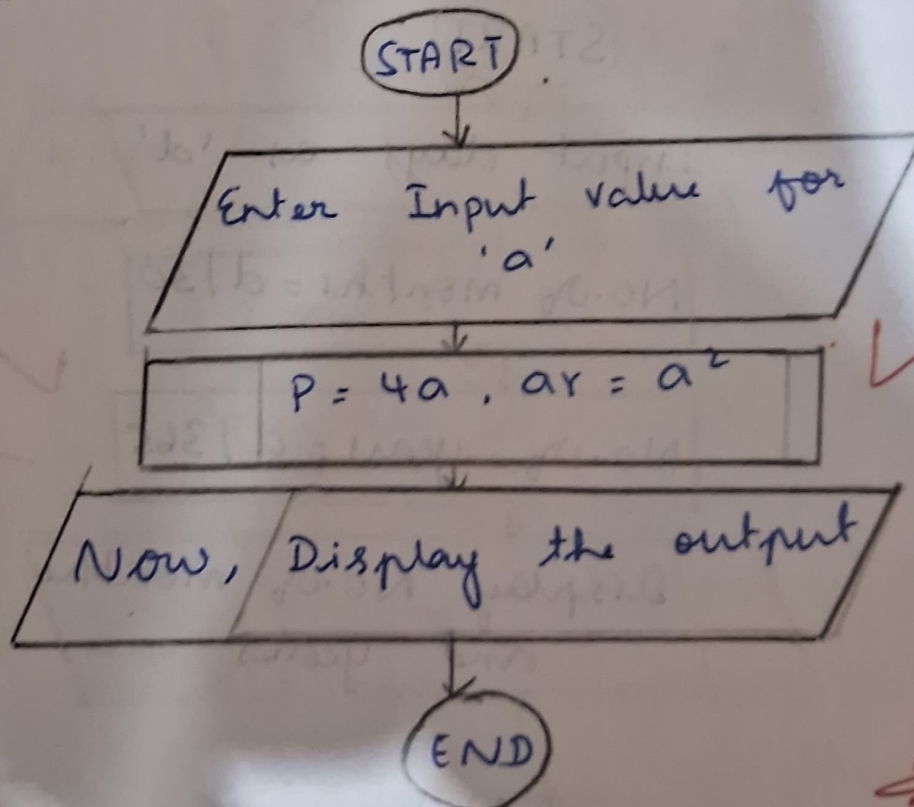 START
Enter Input value for
'a'
P = 4a , ar = a²
Now, Display the output
END